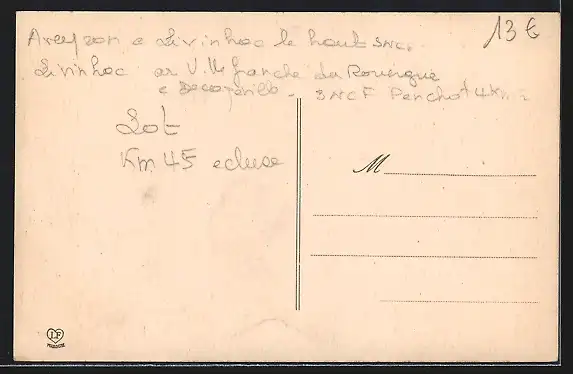 13 €
Aveyron c Livinhac le haut SNCF
Livinhac ar Villefranche de Rouergue
c Decazeville - SNCF Penchot 4 Km
Lot
Km 45 ecluse
M
LF